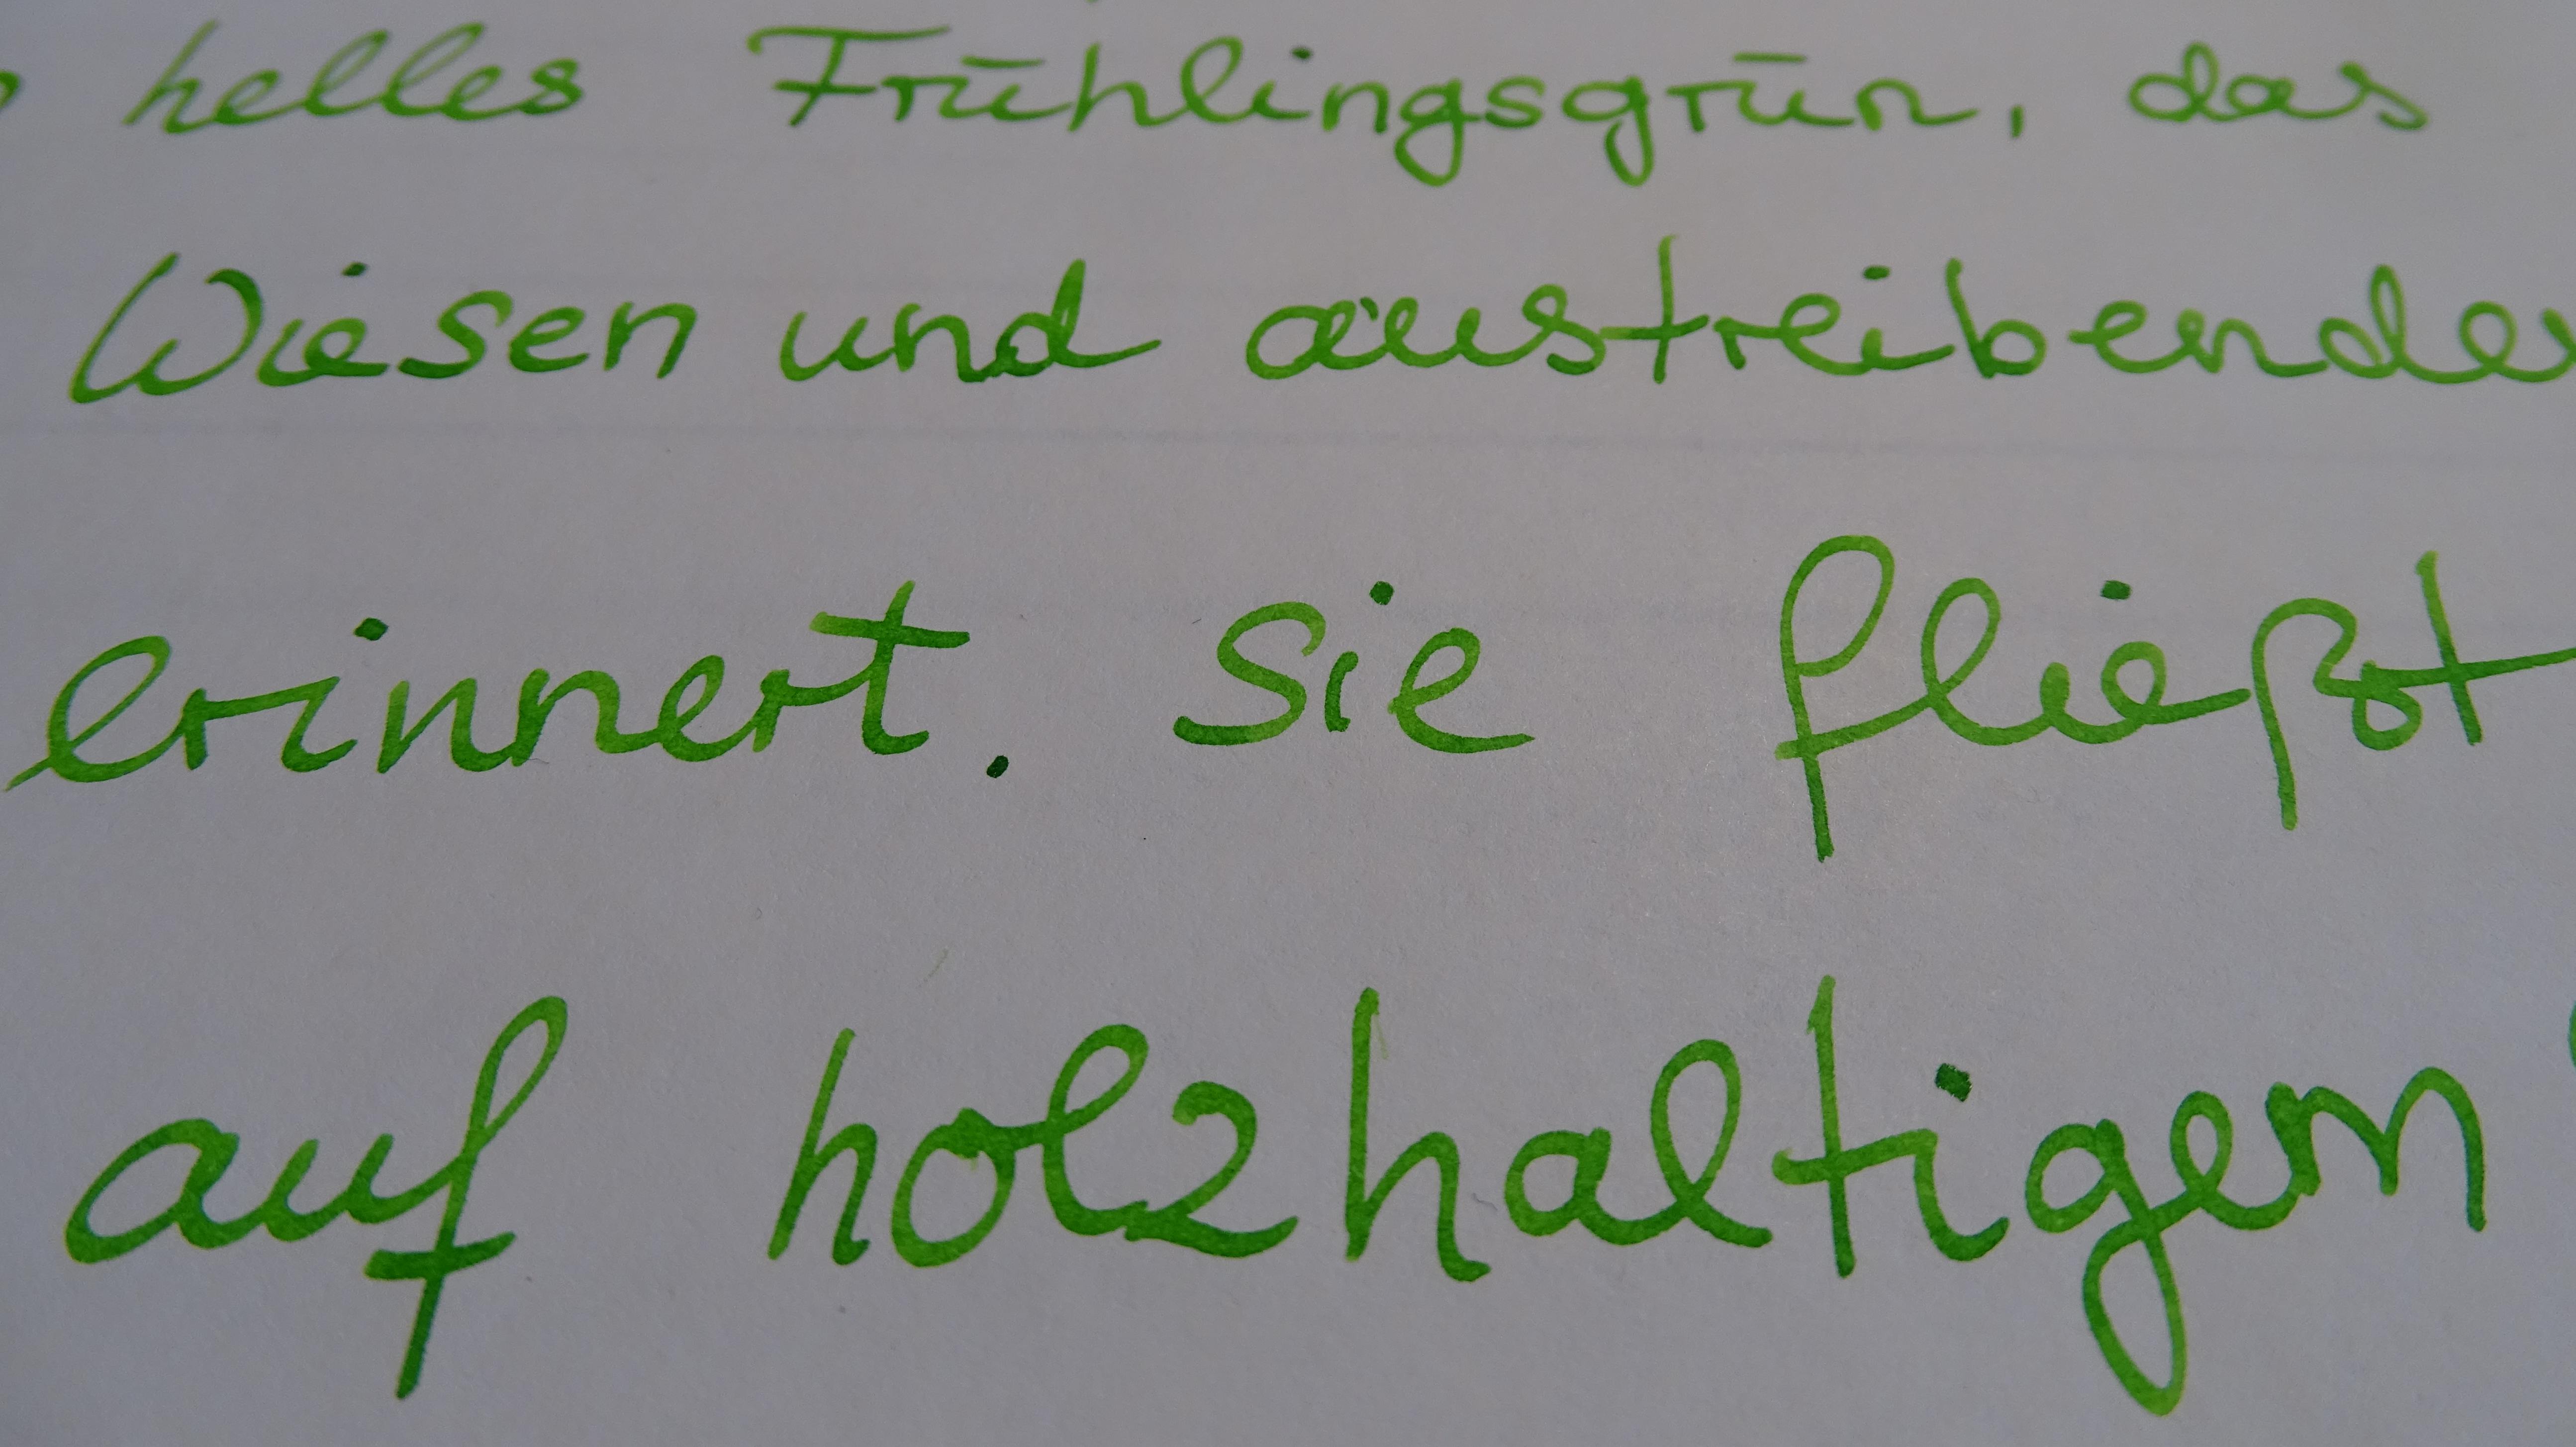 helles Frühlingsgrün, das
Wiesen und austreibende
erinnert. Sie fließt
auf holzhaltigem